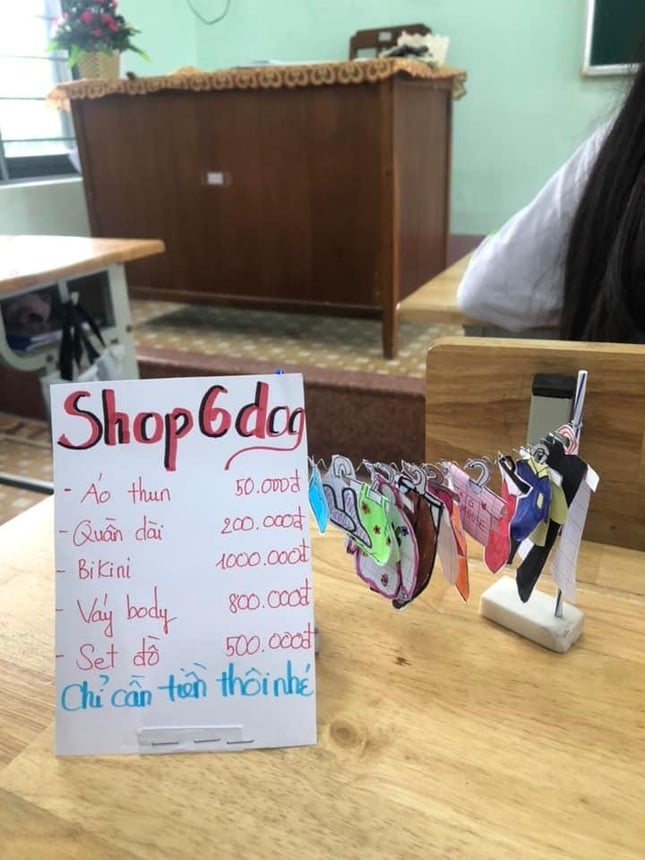 Shop 6 dog
- Áo thun 50.000đ
- Quần dài 200.000đ
- Bikini 1000.000đ
- Váy body 800.000đ
- Set đồ 500.000đ
Chỉ cần tiền thôi nhé